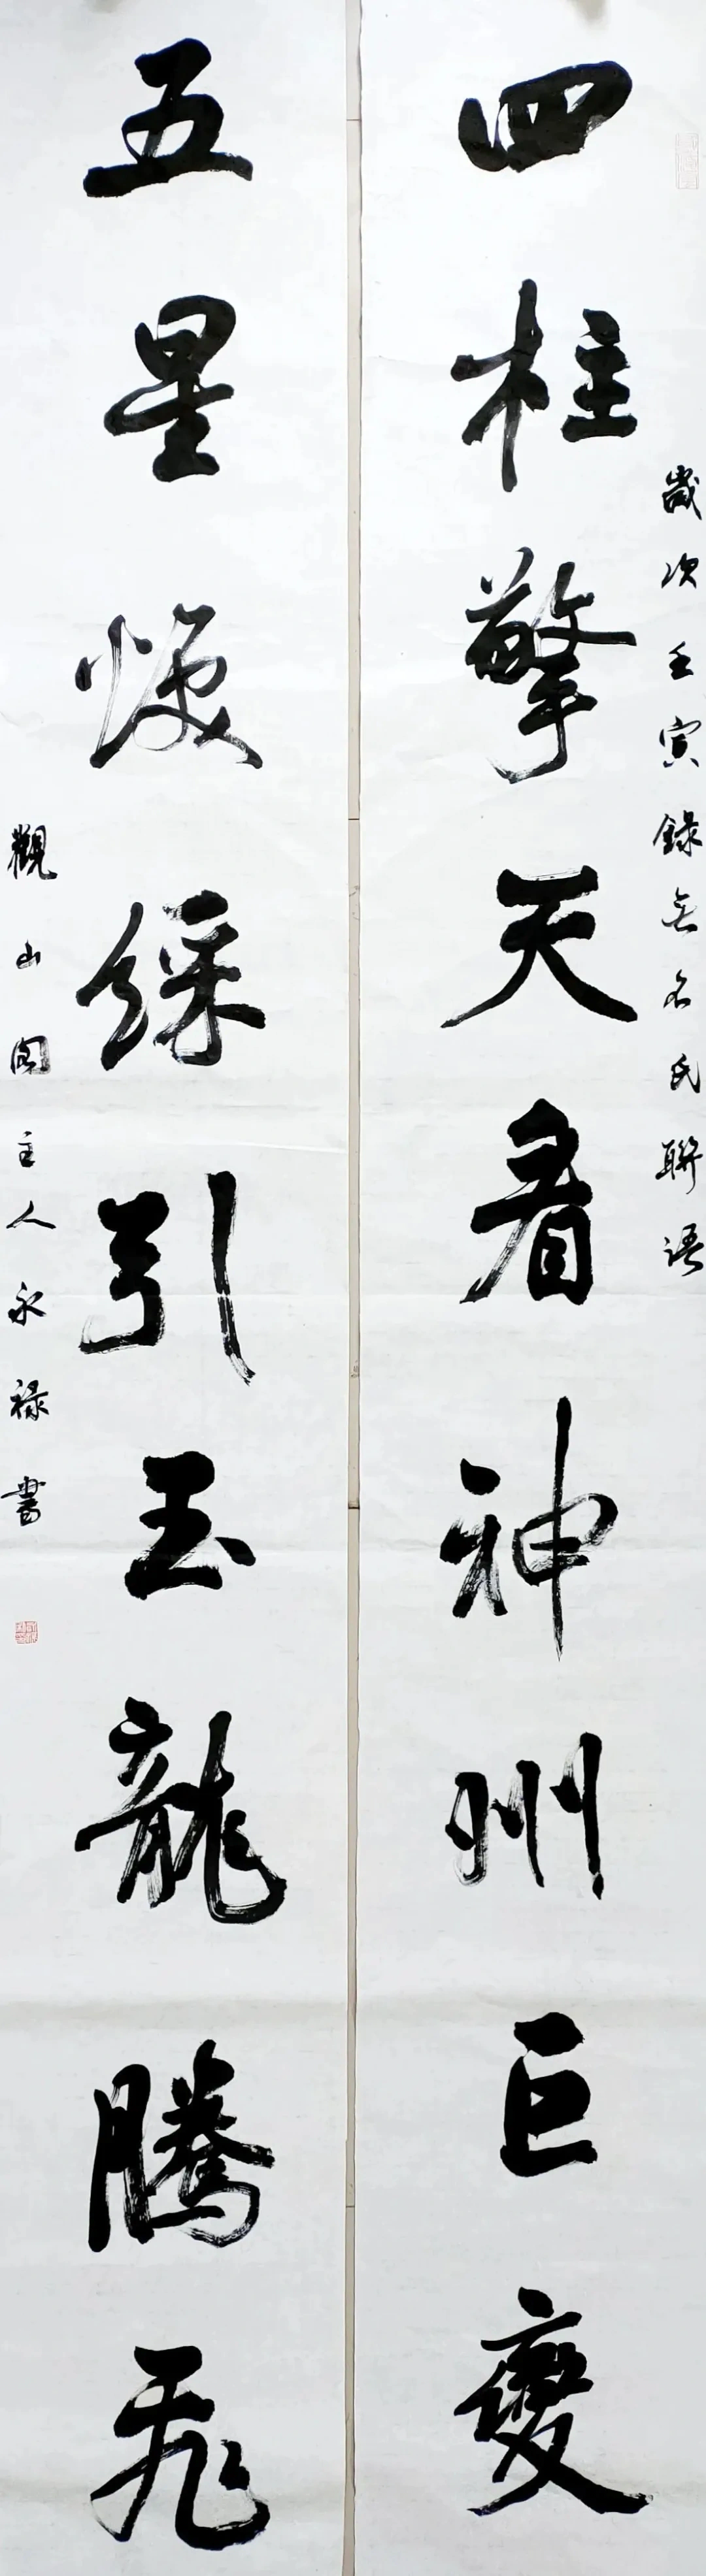 歲次壬寅錄無名氏聯語
四柱擎天看神州巨變
五星煥綵引玉龍騰飛
觀山閣主人永祿書